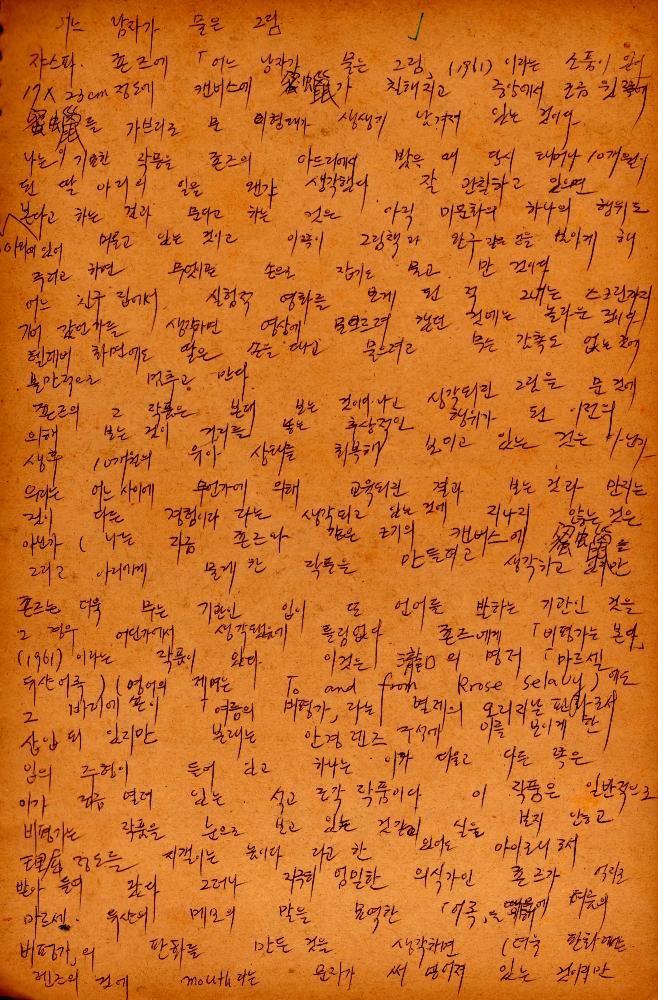 어느 남자가 물은 그림
쟈스파. 죤즈에 「어느 남자가 물은 그림, (1961) 이라는 소품이 있어
17 X 23cm 정도에 캔버스에 蜜蠟가 칠해지고 중앙에서 조금 윗쪽에
蜜蠟를 가브리로 문 이형태가 생생케 남겨져 있는 것이다.
나는 이 기묘한 작품을 죤즈의 아트리에서 봤을 때 당시 태어나 10개월이
된 딸 아리의 일을 왠지 생각했다 잘 관찰하고 있으면
본다고 하는 것과 문다고 하는 것은 아직 미분화의 하나의 행위로
아리에 있어 머물고 있는 것이고 이쪽이 그림책과 완구같은 것을 보이게 해
주려고 하면 무엇이든 손으로 잡기도 물고 만 것이다
어느 친구집에서 실험적 영화를 보게 된 적 그녀는 스크린까지
기어 갔던가를 생각하면 영상에 물으려 했던 것에는 놀라운 것이다.
텔레비 화면에도 딸은 손을 대고 물으려고 무는 감촉도 없는 것에
불만적으로 멈추고 만다
죤즈의 그 작품은 본대 보는 것이나 생각되진 그림을 문 것에
의해 보는 것이 거리를 놓는 추상적인 행위가 된 이전의
생후 10개월의 유아 상태를 회복해 보이고 있는 것은 아닌가
우리는 어느 사이에 무언가에 의해 교육되진 결과 보는 것과 만지는
것이 다른 경험이라 라는 생각되고 있는 것에 지나지 않는 것은
아닌가 ( 나는 지금 죤즈와 같은 크기의 캔버스에 蜜蠟을
그리고 아리에게 물게 한 작품을 만들려고 생각하고 있지만
죤즈는 더욱 무는 기관인 입이 또 언어를 발하는 기관인 것을
그 경우 어딘가에서 생각했음에 틀림없다. 죤즈에게 「비평가는 본다,
(1961) 이라는 작품이 있다. 이것은 瀧口의 명저 「마르셀
듀샹어록 ) (영어의 제명는 To and from Rrose selavy) 에도
그 바리에숀이 「여름의 비평가, 라는 별제의 오리지날 판화로서
삽입 돼 있지만 본래는 안경 렌즈 주석에 이를 보이게 한
입의 주형이 들어 있고 하나는 이와 다물고 다른 쪽은
이가 조금 열려 있는 석고 조각 작품이다 이 작품은 일반적으로
비평가는 작품을 눈으로 보고 있는 것같이 실은 보지 안하고
理屈 정도를 지껄이는 놈이다 라고 한 있어도 아이로니로서
받아 들여 졌다 그러나 지극히 엄밀한 의식가인 죤즈가 억지로
마르세. 듀샨의 메모의 말을 모역한 「어록,을 때문에 「여름의
비평가,의 판화를 만든 것을 생각하면 (더욱 판화에는
렌즈의 것에 mouth라는 문자가 써 넣어져 있는 것이지만